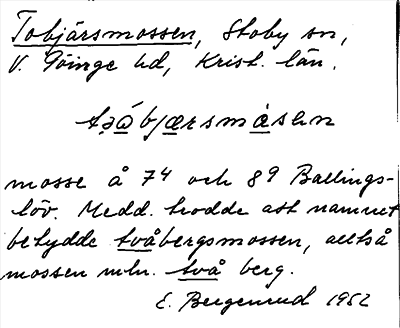 Tobjärsmossen, Stoby sn,
V. Göinge hd, Krist. län.
mosse å 7⁴ och 8⁹ Ballings-
löv. Medd. trodde att namnet
betydde tvåbergsmossen, alltså
mossen mln. två berg.
E. Bergenrud 1952